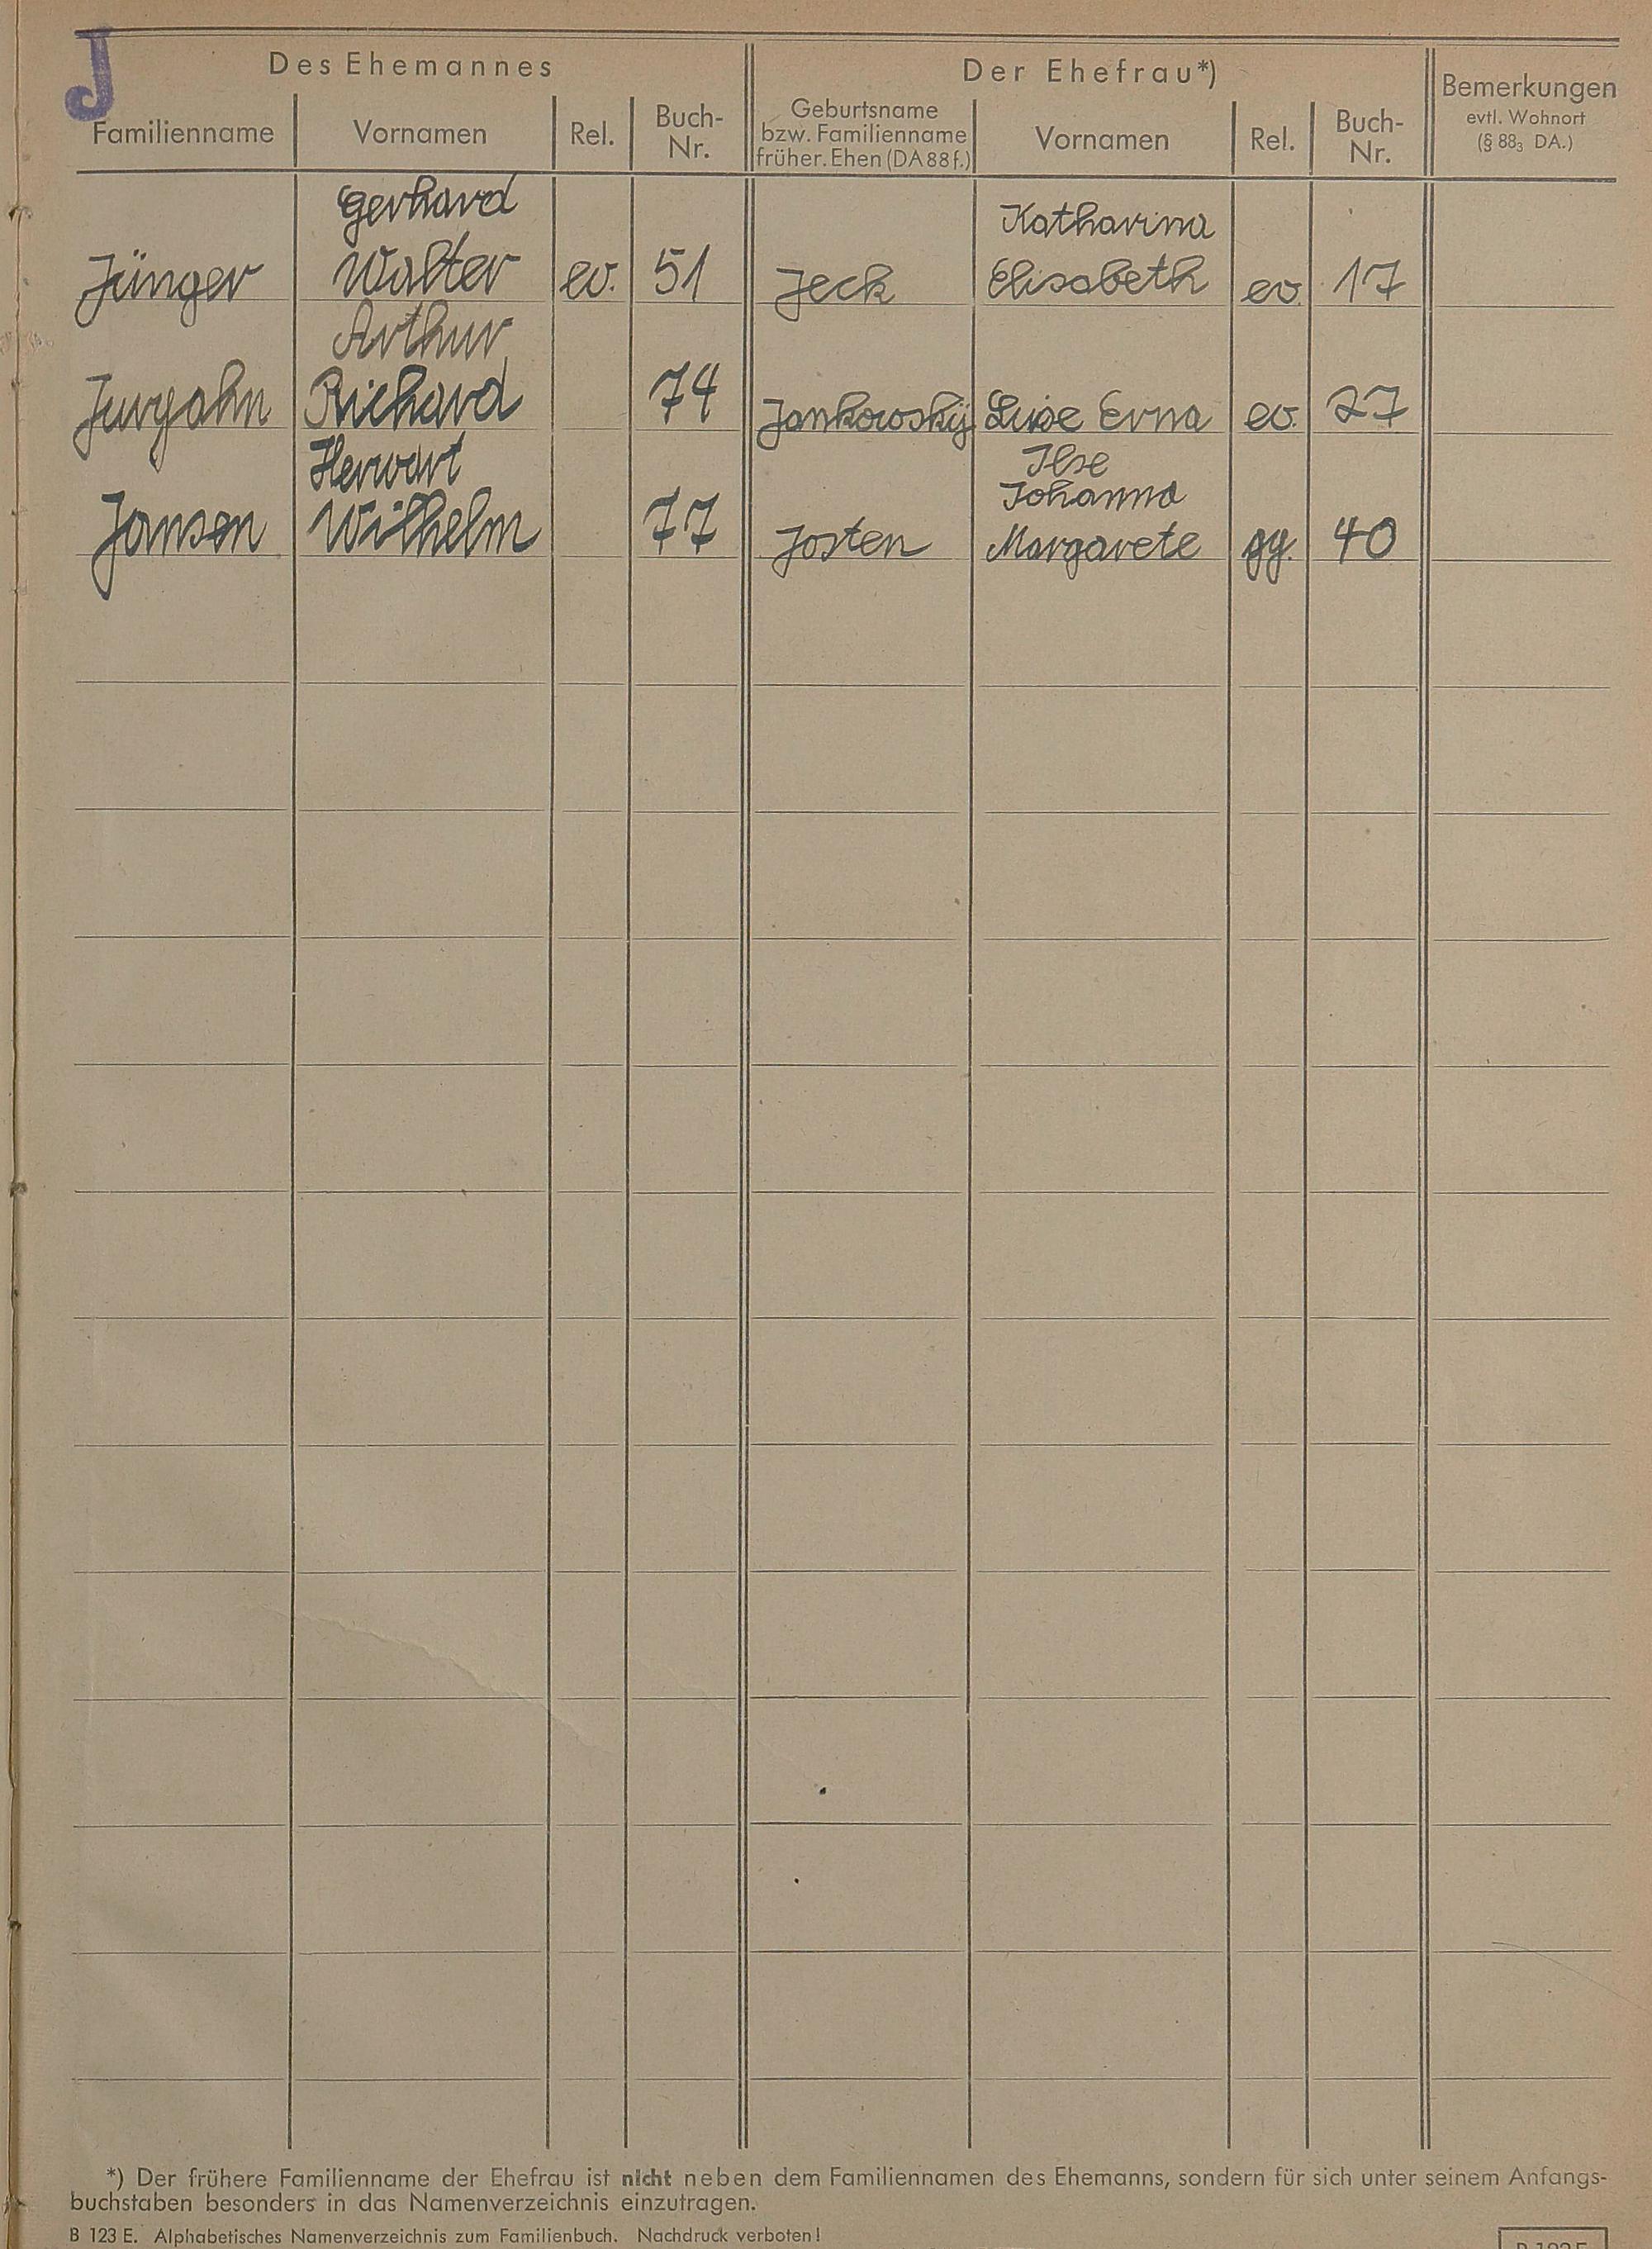 J
Des Ehemannes Der Ehefrau*) Bemerkungen
evtl. Wohnort
(§ 88₃ DA.)
Familienname Vornamen Rel. Buch-Nr. Geburtsname bzw. Familienname früher. Ehen (DA 88 f.) Vornamen Rel. Buch-Nr.
Gerhard Katharina
Jünger Walter ev. 51 Jeck Elisabeth ev. 17
Arthur
Juryahn Richard 74 Jankowskij Luise Erna ev. 27
Herwart Ilse
Johanna
Jansen Wilhelm 77 Josten Margarete gg. 40
*) Der frühere Familienname der Ehefrau ist nicht neben dem Familiennamen des Ehemanns, sondern für sich unter seinem Anfangs-
buchstaben besonders in das Namenverzeichnis einzutragen.
B 123 E. Alphabetisches Namenverzeichnis zum Familienbuch. Nachdruck verboten!